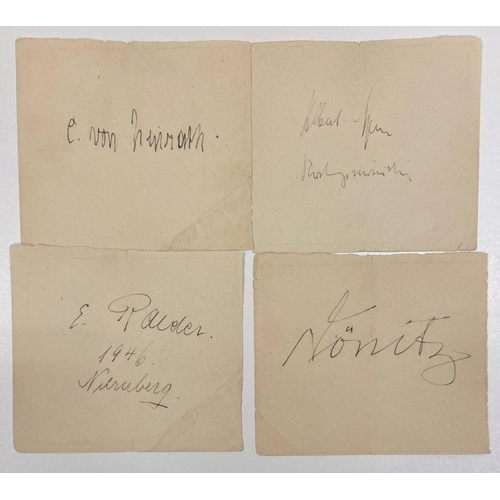 C. von Neurath.
Albert Speer
E. Raeder.
1946.
Nürnberg
Dönitz